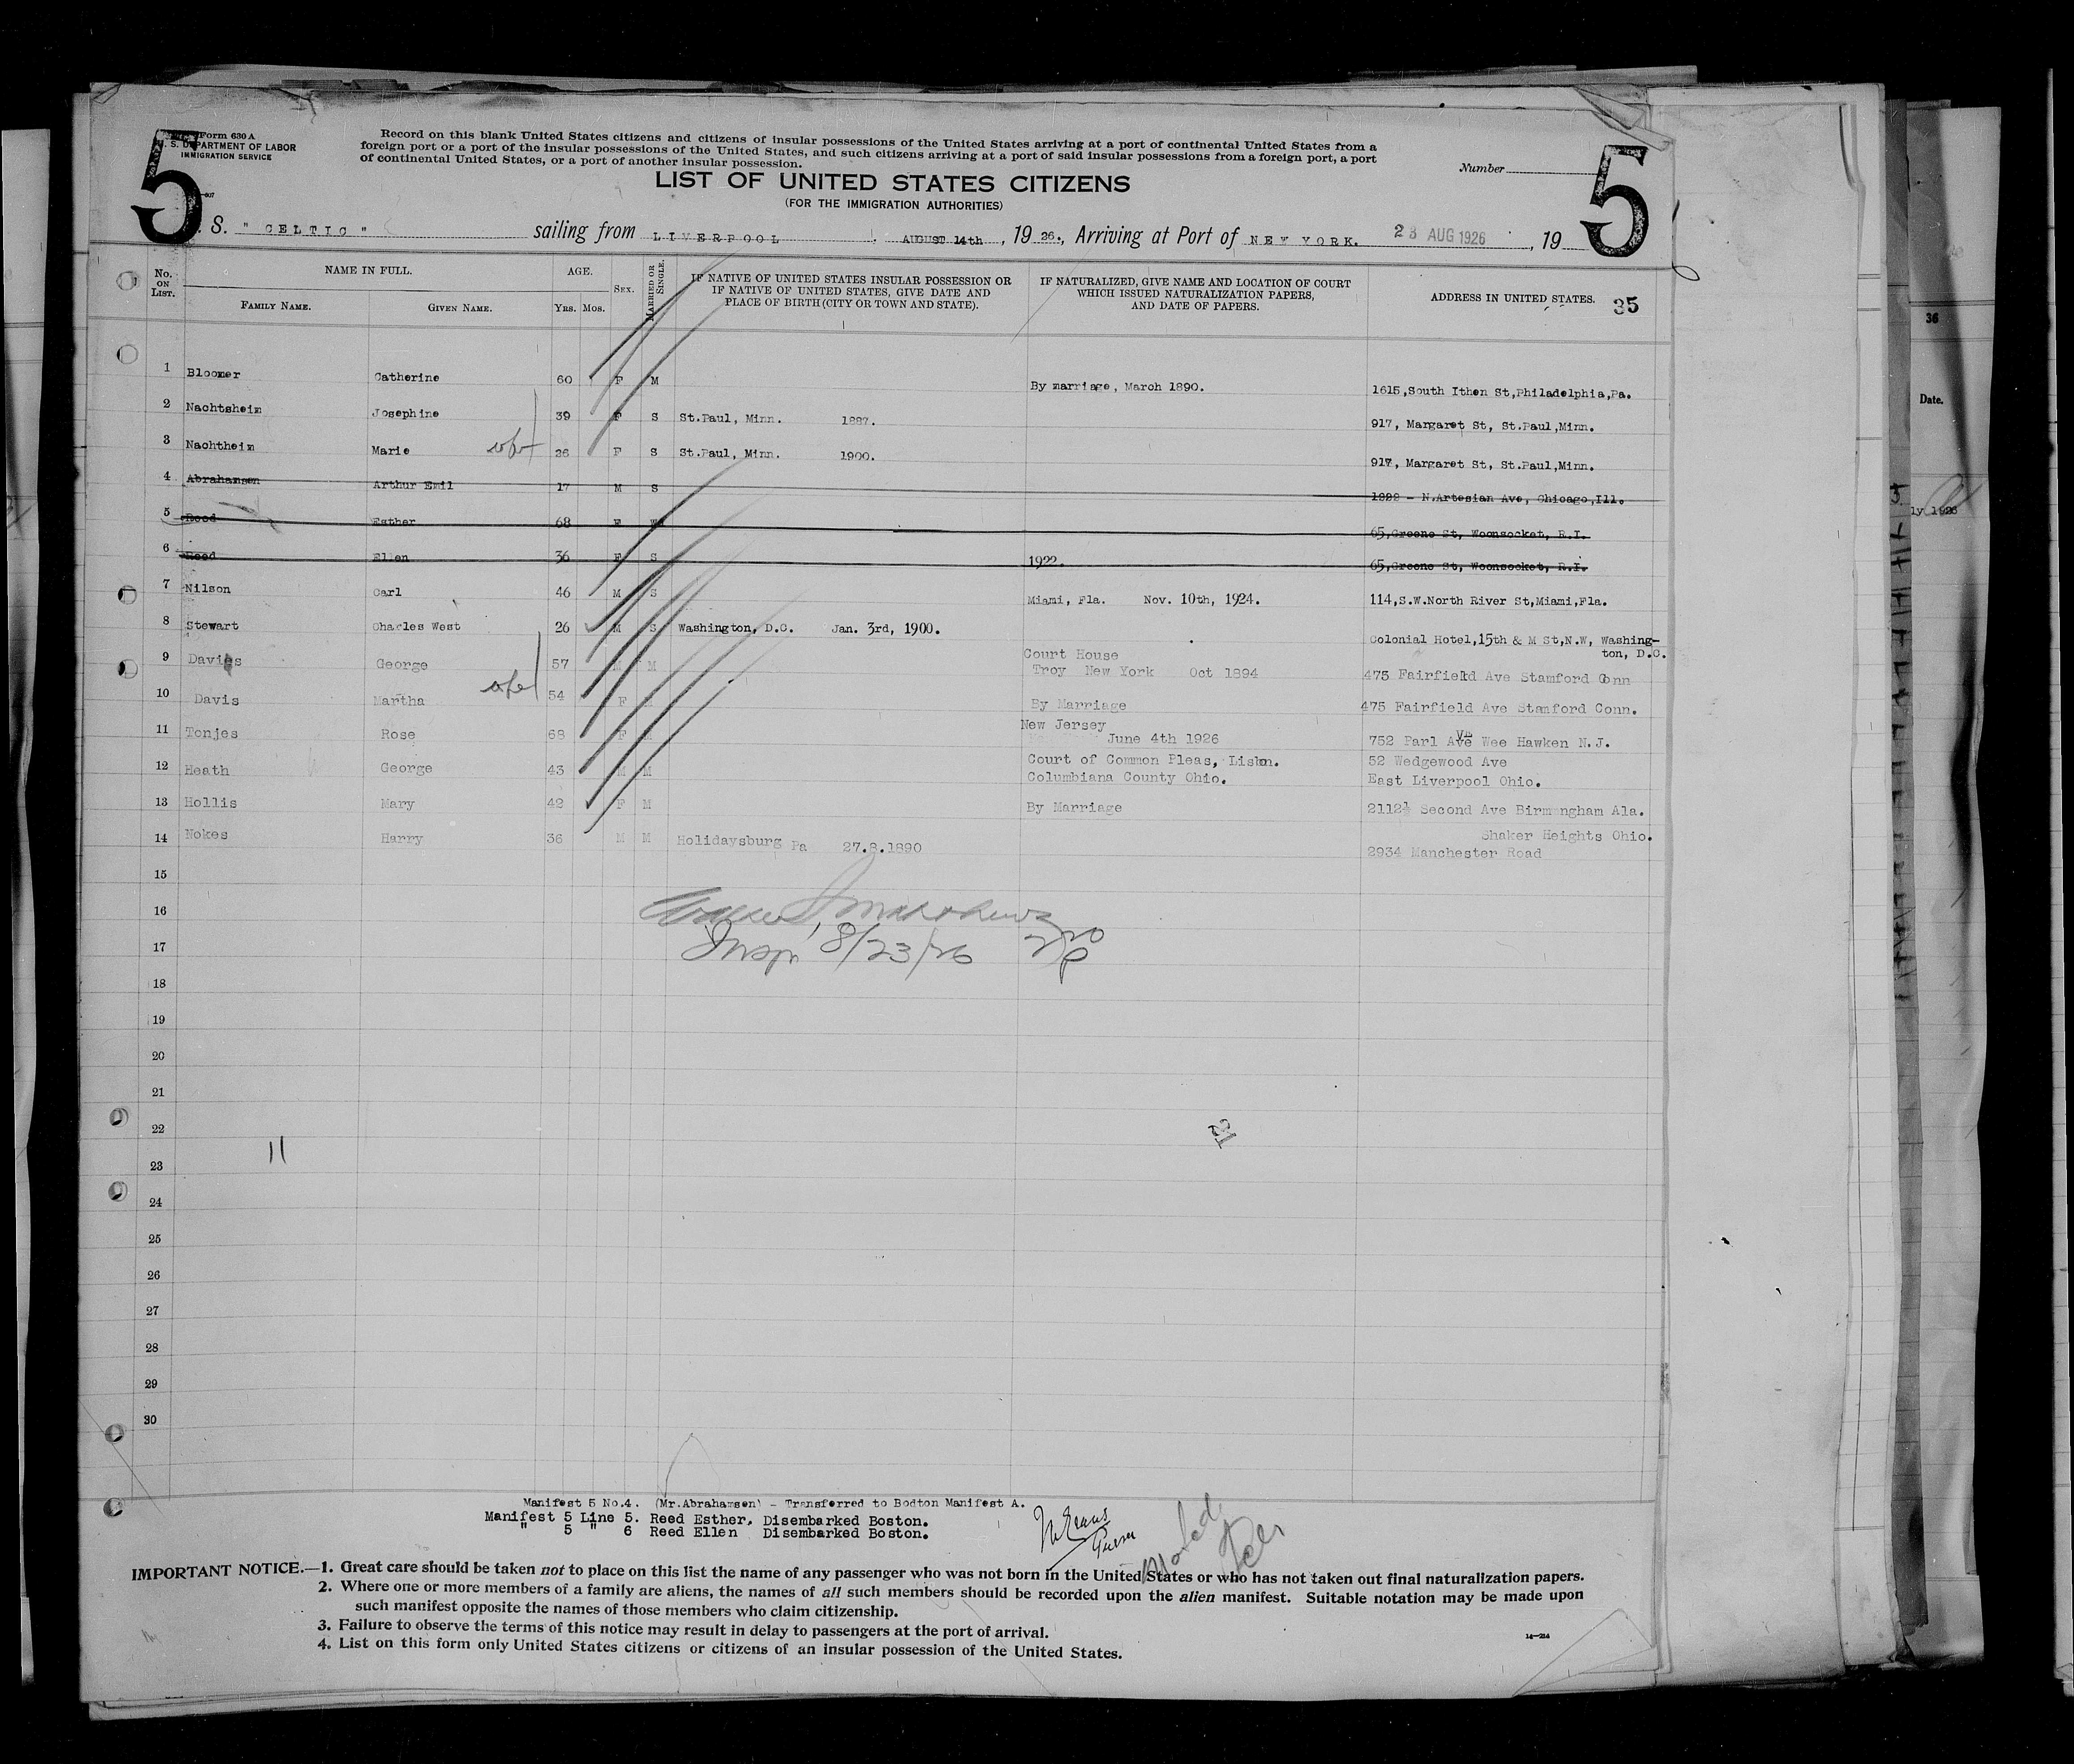 5 5
Form 630 A
U. S. DEPARTMENT OF LABOR
IMMIGRATION SERVICE
Record on this blank United States citizens and citizens of insular possessions of the United States arriving at a port of continental United States from a
foreign port or a port of the insular possessions of the United States, and such citizens arriving at a port of said insular possessions from a foreign port, a port
of continental United States, or a port of another insular possession.
Number
LIST OF UNITED STATES CITIZENS
(FOR THE IMMIGRATION AUTHORITIES)
S. "CELTIC" sailing from LIVERPOOL, AUGUST 14th, 1926., Arriving at Port of NEW YORK. 23 AUG 1926, 19
No. ON LIST. NAME IN FULL. FAMILY NAME. GIVEN NAME. AGE. YRS. MOS. SEX. MARRIED OR SINGLE. IF NATIVE OF UNITED STATES INSULAR POSSESSION OR IF NATIVE OF UNITED STATES, GIVE DATE AND PLACE OF BIRTH (CITY OR TOWN AND STATE). IF NATURALIZED, GIVE NAME AND LOCATION OF COURT WHICH ISSUED NATURALIZATION PAPERS, AND DATE OF PAPERS. ADDRESS IN UNITED STATES. 35
1 Bloomer Catherine 60 F M By marriage, March 1890. 1615,South Ithen St,Philadelphia,Pa.
2 Nachtsheim Josephine 39 F S St.Paul, Minn. 1887. 917, Margaret St, St.Paul,Minn.
3 Nachtheim Marie 26 F S St.Paul, Minn. 1900. 917, Margaret St, St.Paul,Minn.
4 Abrahamsen Arthur Emil 17 M S 1822 - N.Artesian Ave, Chicago,Ill.
5 Reed Esther 68 F 65,Greene St, Woonsocket, R.I.
6 Reed Ellen 36 F S 1922. 65,Greene St, Woonsocket, R.I.
7 Nilson Carl 46 M S Miami, Fla. Nov. 10th, 1924. 114,S.W.North River St,Miami,Fla.
8 Stewart Charles West 26 M S Washington, D.C. Jan. 3rd, 1900. Colonial Hotel,15th & M St,N.W, Washing-
ton, D.C.
9 Davies George 57 M M Court House
Troy New York Oct 1894 475 Fairfield Ave Stamford Conn
10 Davis Martha 54 F By Marriage 475 Fairfield Ave Stamford Conn.
11 Tonjes Rose 68 F M New Jersey
June 4th 1926 752 Parl Ave Wee Hawken N.J.
12 Heath George 43 M M Court of Common Pleas, Lisbn. 52 Wedgewood Ave
Columbiana County Ohio. East Liverpool Ohio.
13 Hollis Mary 42 F M By Marriage 2112½ Second Ave Birmongham Ala.
14 Nokes Harry 36 M M Holidaysburg Pa 27.8.1890 Shaker Heights Ohio.
2934 Manchester Road
15
16
17 Insp. 8/23/26
18
19
20
21
22 21
23 11
24
25
26
27
28
29
30
Manifest 5 No.4. (Mr.Abrahamsen) - Transferred to Bodton Manifest A.
Manifest 5 Line 5. Reed Esther. Disembarked Boston.
" 5 " 6 Reed Ellen Disembarked Boston.
Noted
IMPORTANT NOTICE.—1. Great care should be taken not to place on this list the name of any passenger who was not born in the United States or who has not taken out final naturalization papers.
2. Where one or more members of a family are aliens, the names of all such members should be recorded upon the alien manifest. Suitable notation may be made upon
such manifest opposite the names of those members who claim citizenship.
3. Failure to observe the terms of this notice may result in delay to passengers at the port of arrival.
4. List on this form only United States citizens or citizens of an insular possession of the United States.
14—234
36
Date.
ly 1926